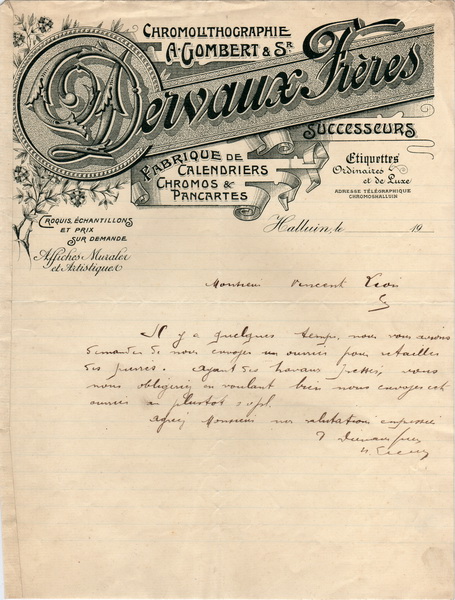 CHROMOLITHOGRAPHIE
A. GOMBERT & Sr
Dervaux Frères
SUCCESSEURS
FABRIQUE DE
CALENDRIERS
CHROMOS &
PANCARTES
Etiquettes
Ordinaires
et de Luxe
ADRESSE TÉLÉGRAPHIQUE
CHROMOSHALLUIN
CROQUIS, ÉCHANTILLONS
ET PRIX
SUR DEMANDE
Affiches Murales
et Artistiques
Halluin, le 19
Monsieur Vincent
Il y a quelques temps, nous vous avions
demandé de nous envoyer un ouvrier pour retailler
des pierres. Ayant des travaux pressés, vous
nous obligeriez en voulant bien nous envoyer cet
ouvrier au plustot s.v.pl.
Agréez Monsieur nos salutations empressées
Dervaux frères